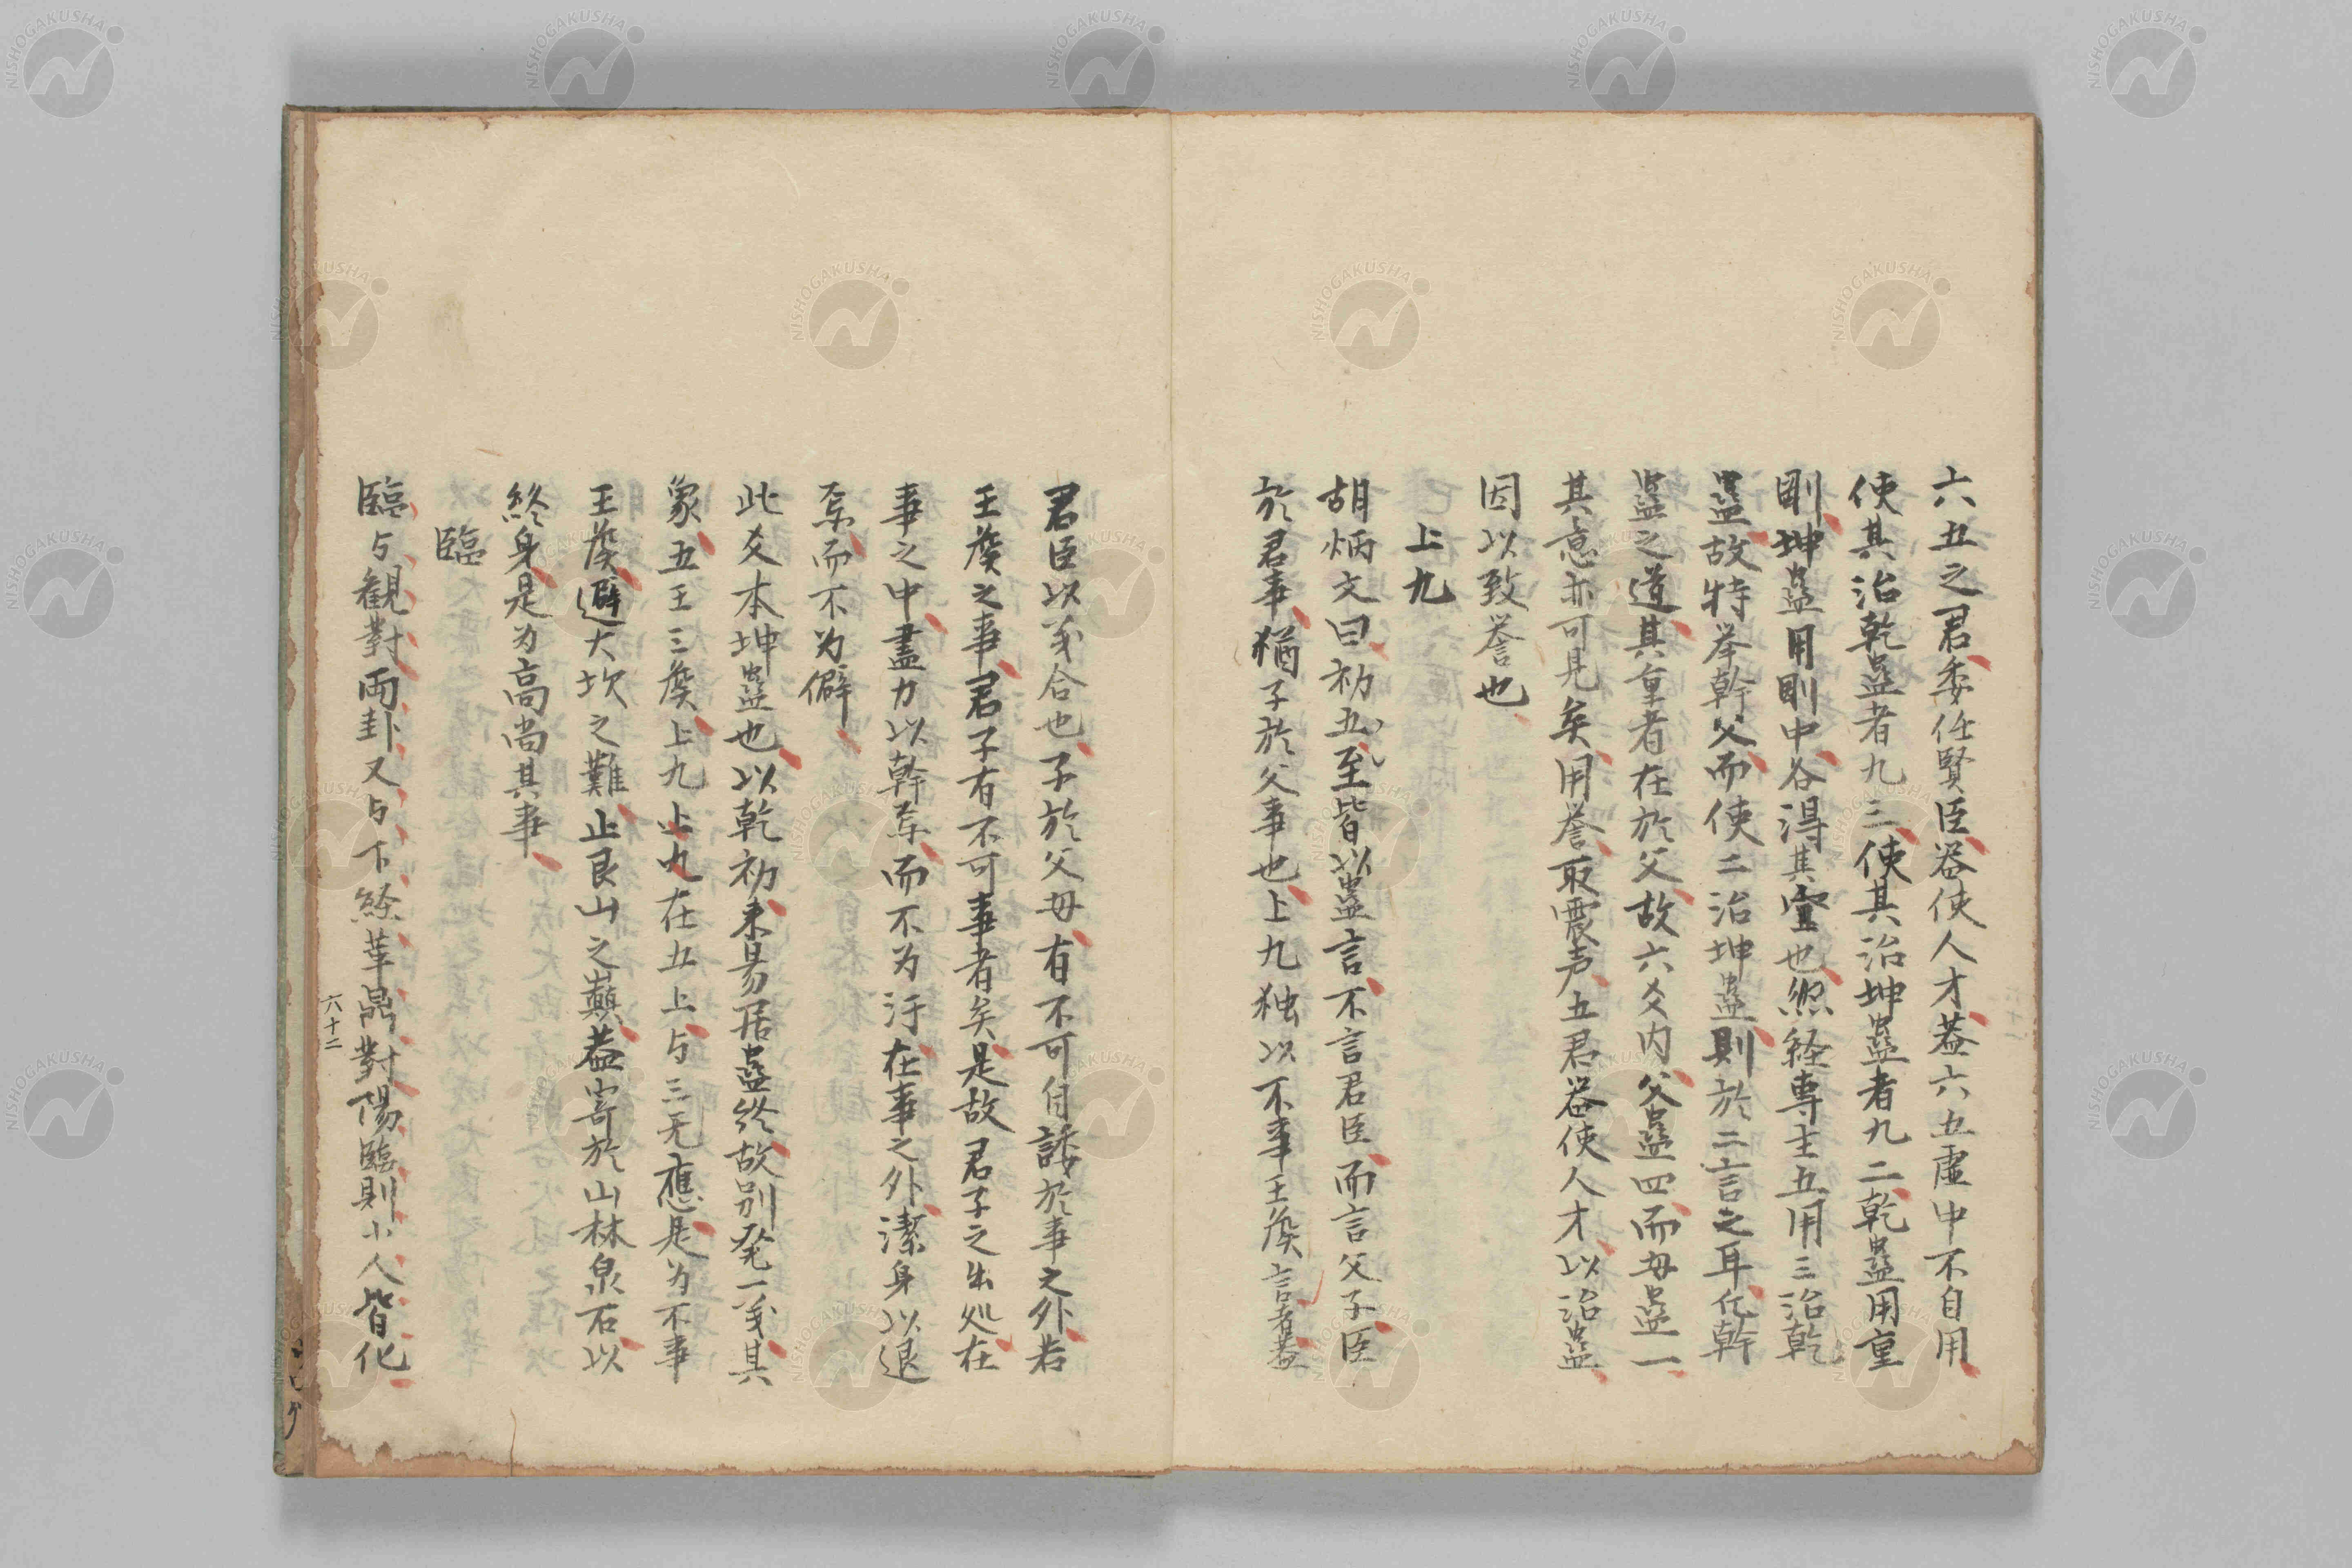 六五之君委任賢臣器使人才蓋六五虚中不自用
使其治乾蠱者九三使其治坤蠱者九二乾蠱用重
剛坤蠱用剛中各得其宜也然経専主五用三治乾
蠱故特举幹父而使二治坤蠱則於二言之耳化幹
蠱之道其重者在於父故六爻内父蠱四而母蠱一
其意亦可見矣用誉取震声五君器使人才以治蠱
因以致誉也
上九
胡炳文曰初五至皆以蠱言不言君臣而言父子臣
於君事猶子於父事也上九独以不事王矦言者蓋
君臣以义合也子於父母有不可自諉於事之外若
王矦之事君子有不可事者矣是故君子之出処在
事之中盡力以幹焉而不为汙在事之外潔身以退
焉而不为僻
此爻本坤蠱也以乾初来易居蠱終故别発一义其
象五王三矦上九止九在五上与三无應是为不事
王矦避大坎之難止艮山之巔蓋寄於山林泉石以
終身是为高尚其事
臨
臨与観對両卦又与下経革鼎對陽臨則小人皆化
六十二
NISHOGAKUSHA